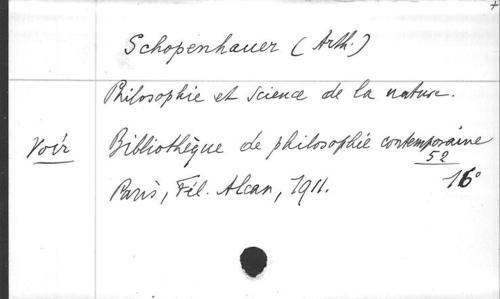 Schopenhauer (Arth.)
Philosophie et Science de la nature.
Voir Bibliothèque de philosophie contemporaine
52
Paris, Fél. Alcan, 1911. 16°